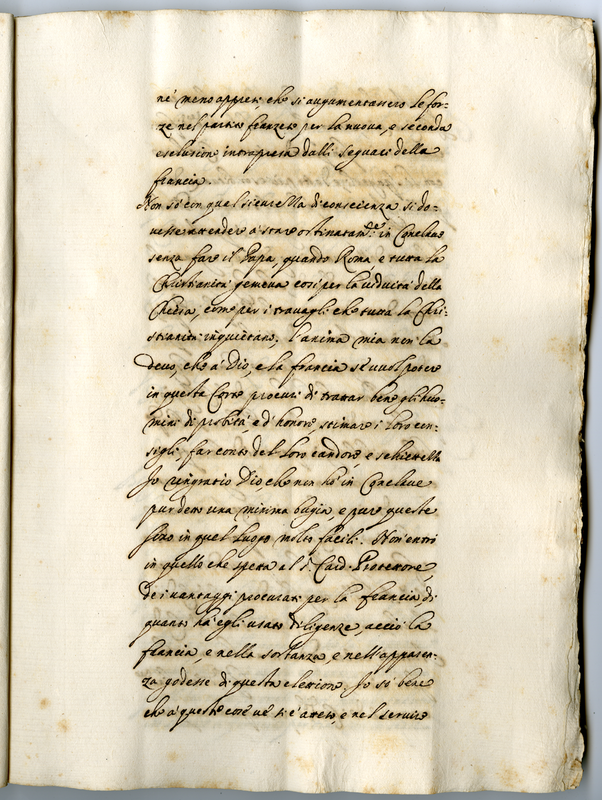 ne meno appresi, che si augumentassero le for:
ze nel partito franzese per la nuova, e seconda
esclusione intrapresa dalli seguaci della
francia.
Non sò con quel sicurezza di conscienza si do:
vesse attendere à stare ostinatam.te in Conclave
senza fare il Papa, quando Roma, e tutta la
Christianità gemeva così per la viduità della
Chiesa, come per i travagli che tutta la Chri:
stianità inquietano; l'anima mia non la
devo, che à Dio, e la francia se vuol potere
in questa Corte procuri di trattar bene gli huo:
mini di probità, e d'honore, stimare i loro con:
sigli, far conto del loro candore, e schiettezza
Io ringratio Dio che non hò in Conclave
pur detto una minima bugia, e pure queste
sono in quel luogo molto facili. Non entri
in quello che spetta al S. Card. Protettore,
de i vantaggi procurati per la francia, di
quanto hà egli usato diligenze, acciò la
francia, e nella sostanza, e nell'apparen:
za godesse di questa elettione. Io sò bene
che à queste cose vi si è atteso, e nel servire